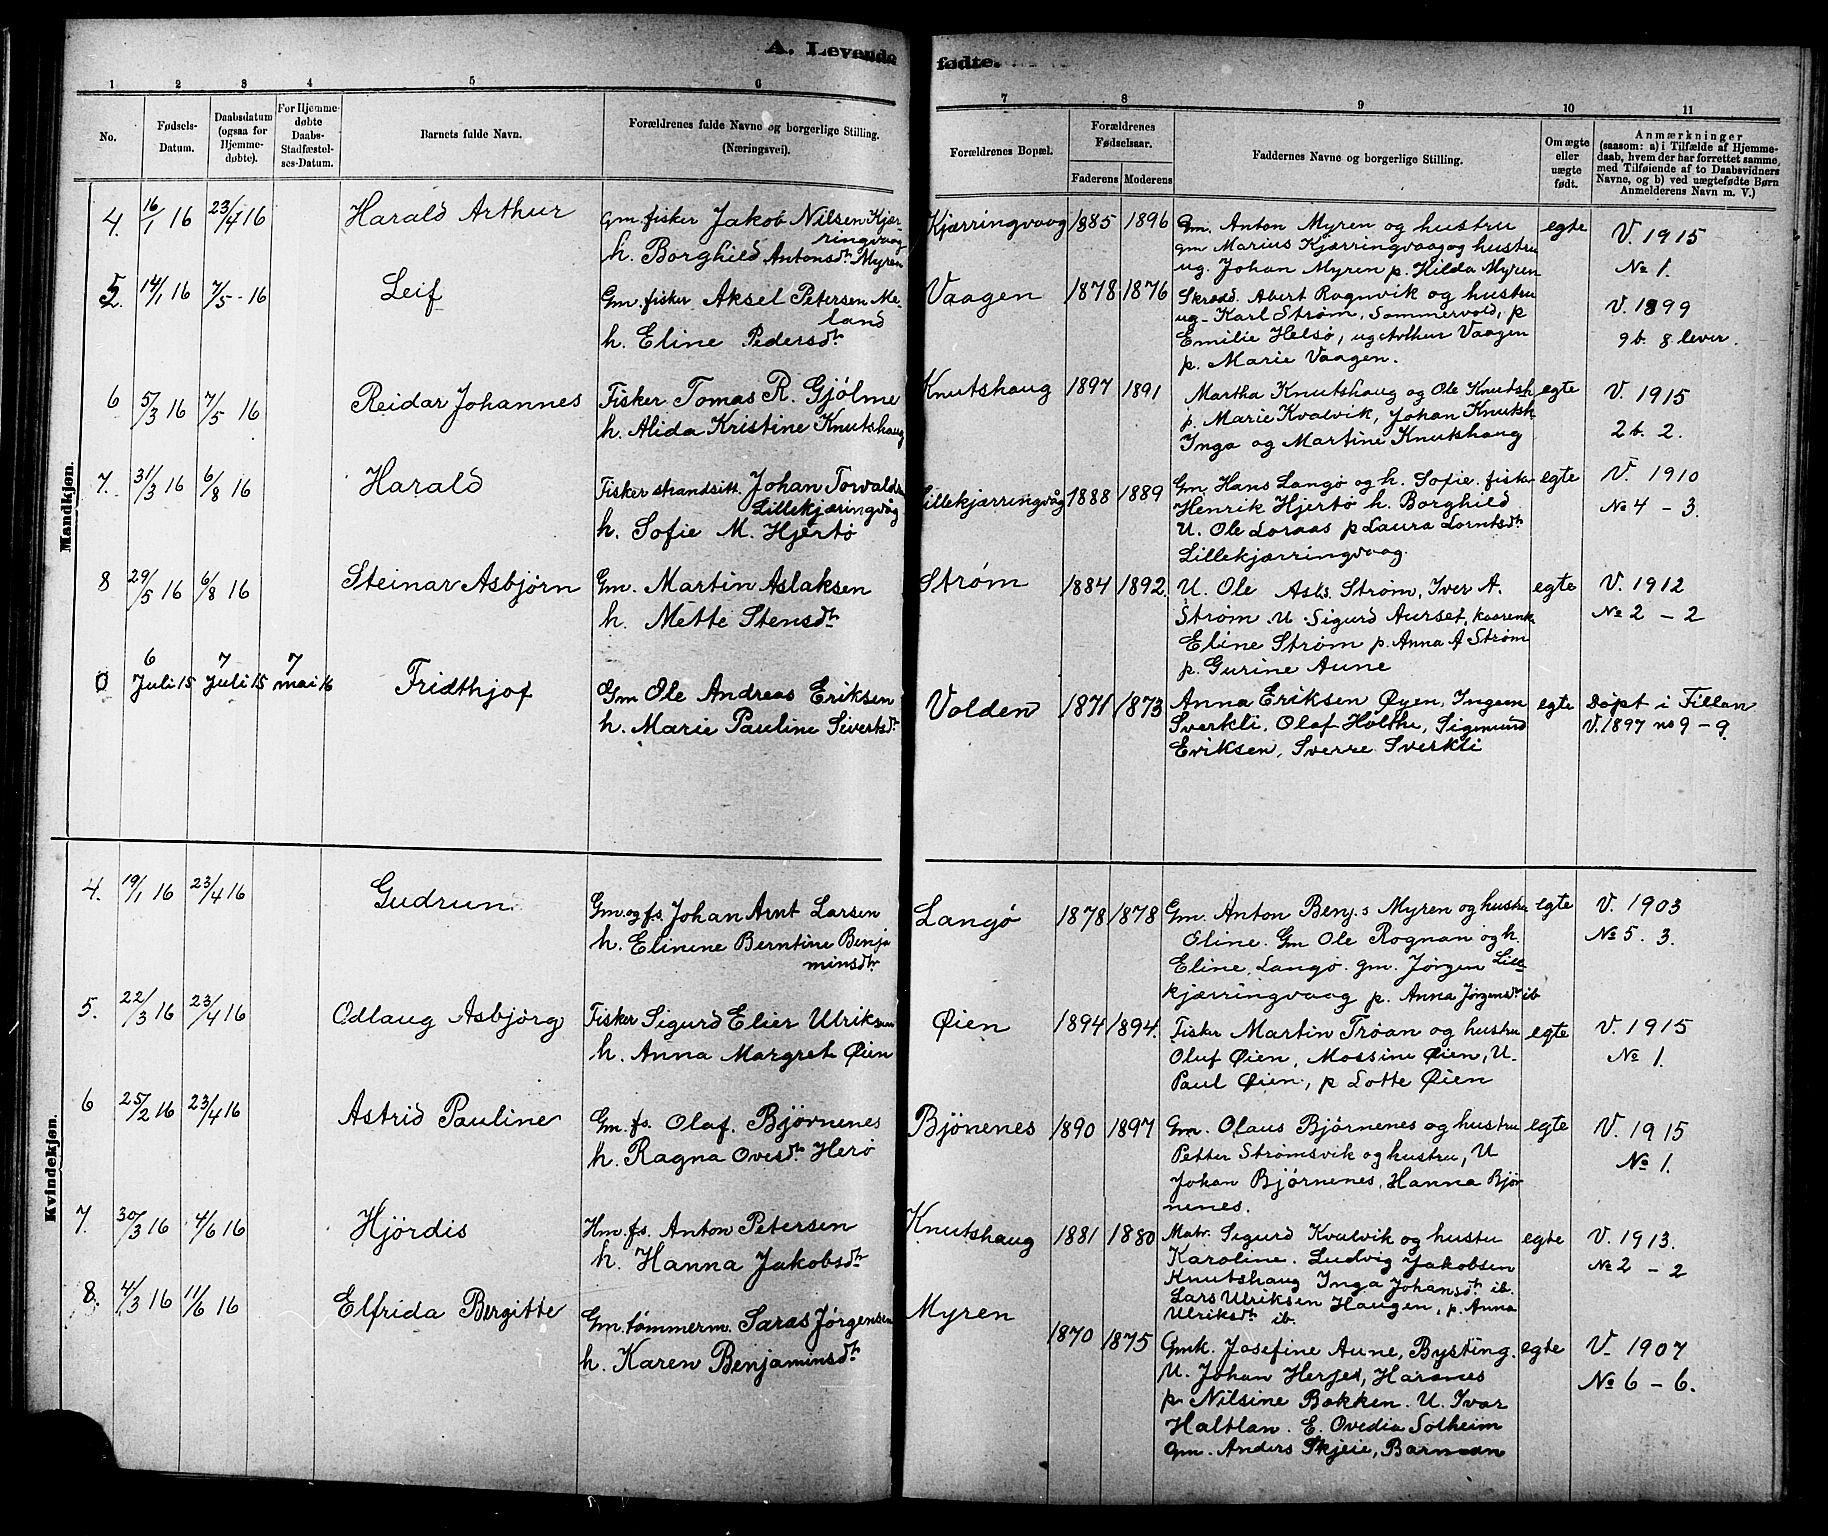 A. Levende fødte.
1 2 3 4 5 6 7 8 9 10 11
No.
Fødsels-
Datum.
Daabsdatum
(ogsaa for
Hjemme-
døbte).
For Hjemme-
døbte
Daabs-
Stadfæstel-
ses-Datum.
Barnets fulde Navn.
Forældrenes fulde Navne og borgerlige Stilling.
(Næringsvei).
Forældrenes Bopæl.
Forældrenes
Fødselsaar.
Faderens Moderens
Faddernes Navne og borgerlige Stilling.
Om ægte
eller
uægte
født.
Anmærkninger
(saasom: a) i Tilfælde af Hjemme-
daab, hvem der har forrettet samme,
med Tilføiende af to Daabsvidners
Navne, og b) ved uægtefødte Børn
Anmelderens Navn m. V.)
Mandkjøn.
4. 16/1 16 23/4 16 Harald Arthur
gm. fisker Jakob Nilsen Kjær-
ringvaag
h. Borghild Antonsdtr Myren
Kjærringvaag 1885 1896
Gm. Anton Myren og hustru
gm Marius Kjærringvaag og hustru
ug. Johan Myren p. Hilda Myren
egte
V. 1915
No 1.
5. 14/1 16 7/5 - 16 Leif
Gm. fisker Aksel Petersen Me-
land
h. Eline Pedersdtr
Vaagen 1878 1876
Skrædd. Abert Rognvik og hustru
ug. Karl Strøm, Sommervold, p
Emilie Helsø, ug Arthur Vaagen
p. Marie Vaagen.
V. 1899
9 b. 8 lever.
6 5/3 16 7/5 16 Reidar Johannes
Fisker Tomas R. Gjølme
h. Alida Kristine Knutshaug
Knutshaug 1897 1891
Martha Knutshaug og Ole Knutsh
p. Marie Kvalvik, Johan Knutsh
Inga og Martine Knutshaug
egte
V. 1915
2 b. 2.
7. 31/3 16 6/8 16 Harald
Fisker strandsitt. Johan Torvalds
Lillekjæringvåg
h. Sofie M. Hjertø
Lillekjærringvåg 1888 1889
Gm. Hans Langø og h. Sofie. fisker
Henrik Hjertø h. Borghild
U. Ole Loraas p Laura Lorntsdtr
Lillekjærringvaag.
egte
V. 1910
No 4 - 3.
8 29/5 16 6/8 16 Steinar Asbjørn
Gm. Martin Aslaksen
h. Mette Stensdtr
Strøm 1884 1892.
U. Ole Asls. Strøm, Iver A.
Strøm U. Sigurd Aurset,
Eline Strøm p. Anna A Strøm
p. Gurine Aune
egte
V. 1912
No 2 - 2
0 6 Juli 15 7 Juli 15 7 mai 16 Fridthjof
Gm Ole Andreas Eriksen
h. Marie Pauline Sivertsdtr
Volden 1871 1873
Anna Eriksen Øyen, Ingeen
Sverkli, Olaf Holthe, Sigmund
Eriksen, Sverre Sverkli
egte
Døpt i Fillan
V. 1897 no 9 - 9.
Kvindekjøn.
4. 19/1 16 23/4 16 Gudrun
Gm. og fs. Johan Arnt Larsen
h. Elinene Berntine Benja
minsdtr
Langø 1878 1878
Gm. Anton Benj.s Myren og hustru
Oline. Gm Ole Rognan og h.
Eline, Langø. gm. Jørgen Lille
kjærringvaag p. Anna Jørgensdtr ib
egte
V. 1903
No 5. 3.
5. 22/3 16 23/4 16 Odlaug Asbjørg
Fisker Sigurd Elier Ulriksen
h. Anna Margret Øien
Øien 1894 1894.
Fisker Martin Trøan og hustru
Oluf Øien, Mossine Øien, U.
Paul Øien, p Lotte Øien
egte
V. 1915
No 1.
6 25/2 16 23/4 16 Astrid Pauline
Gm. fs. Olaf. Bjørnenes
h. Ragna Ovesdtr Herø
Bjönenes 1890 1897
Gm. Olaus Bjørnenes og hustru
Petter Strømsvik og hustru, U
Johan Bjørnenes, Hanna Bjør
nenes.
egte
V. 1915
No 1.
7. 30/3 16 4/6 16 Hjørdis
Hm. fs. Anton Petersen
h. Hanna Jakobsdtr
Knutshaug 1881 1880
Matr. Sigurd Kvalvik og hustru
Karoline. Ludvig Jakobsen
Knutshaug Inga Johansdtr ib.
Lars Ulriksen Haugen, p. Anna
Ulriksdtr ib.
egte
V. 1913.
No 2 - 2
8. 4/3 16 11/6 16 Elfrida Bergitte
Gm. tømmerm. Saras Jørgensen
h. Karen Benjaminsdtr
Myren 1870 1875
Gmk. Josefine Aune, Bysting.
U. Johan Herjed, Haranes
p. Nilsine Bakken. U. Ivar
Haltlan. E. Ovedia Solheim
gm. Anders Skjeie, Barman
egte
V. 1907
No 6 - 6.